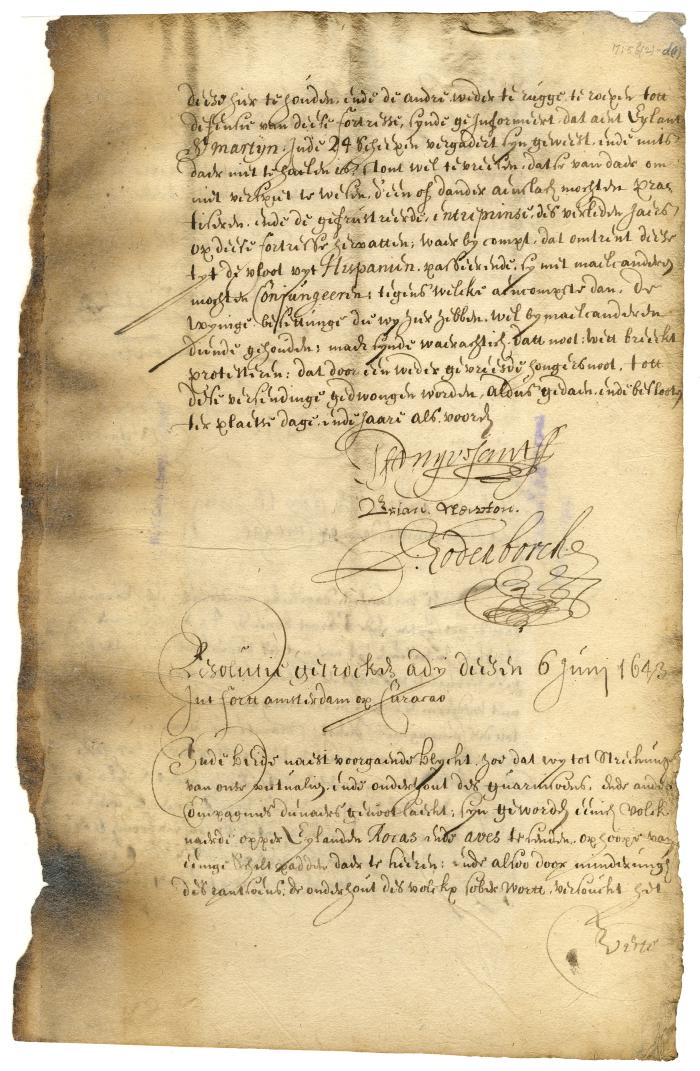 deese hier te houden, ende de andre weder te rugge te roepen tott
defensie van deese fortresse, synde geinformeert, dat aent Eylant
St martyn, inde 24 Scheepen vergadert syn geweest, ende mits
daer niet te haelen is, stont wel te vreesen, datse van daer om
niet verspiet te wesen, d'een of dander aenslach mochten prac
tiseren, ende de gefrustreerde, entreprinse, des verleden Jaers
op deese fortresse hervatten; waer by compt, dat omtrent deese
tyt de vloot uyt Hispanien, passerende, sy met malcanderen
mochten Conjungeeren; tegens welcke aencompste dan, de
weynige besettinge die wy hier hebben, wel by malcanderen
diende gehouden; maer synde waerachtich, datt noot: wett breeckt
protesteren: dat door een weder gevreesde hongersnoot, tott
dese versendinge gedwongen worden, Aldus gedaen, ende beslooten
ter plaetse dage, ende Jaare als voorn
PStuyvesant
Brian Newton.
L. Rodenborch
Resolutie getrocken ady deesen 6 Junij 1643
Int fortt amsterdam op Curacao
Inde beide naest voorgaende blyckt, hoe dat wy tot Streckinge
van onse victualien, ende onderhout des guarnisoens, ende andre
Compagnies dienaers genootsaeckt, syn geworden eenich volck
naer de opper Eylanden Rocas ende aves te senden, op hoope van
eenige Schilt padden daer te keeren; ende alsoo door minderingh
des rantsoens, de onderhout des volckx sober wortt, versoeckt het